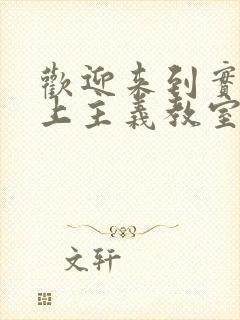 歡迎來到實
上主義教室
文轩